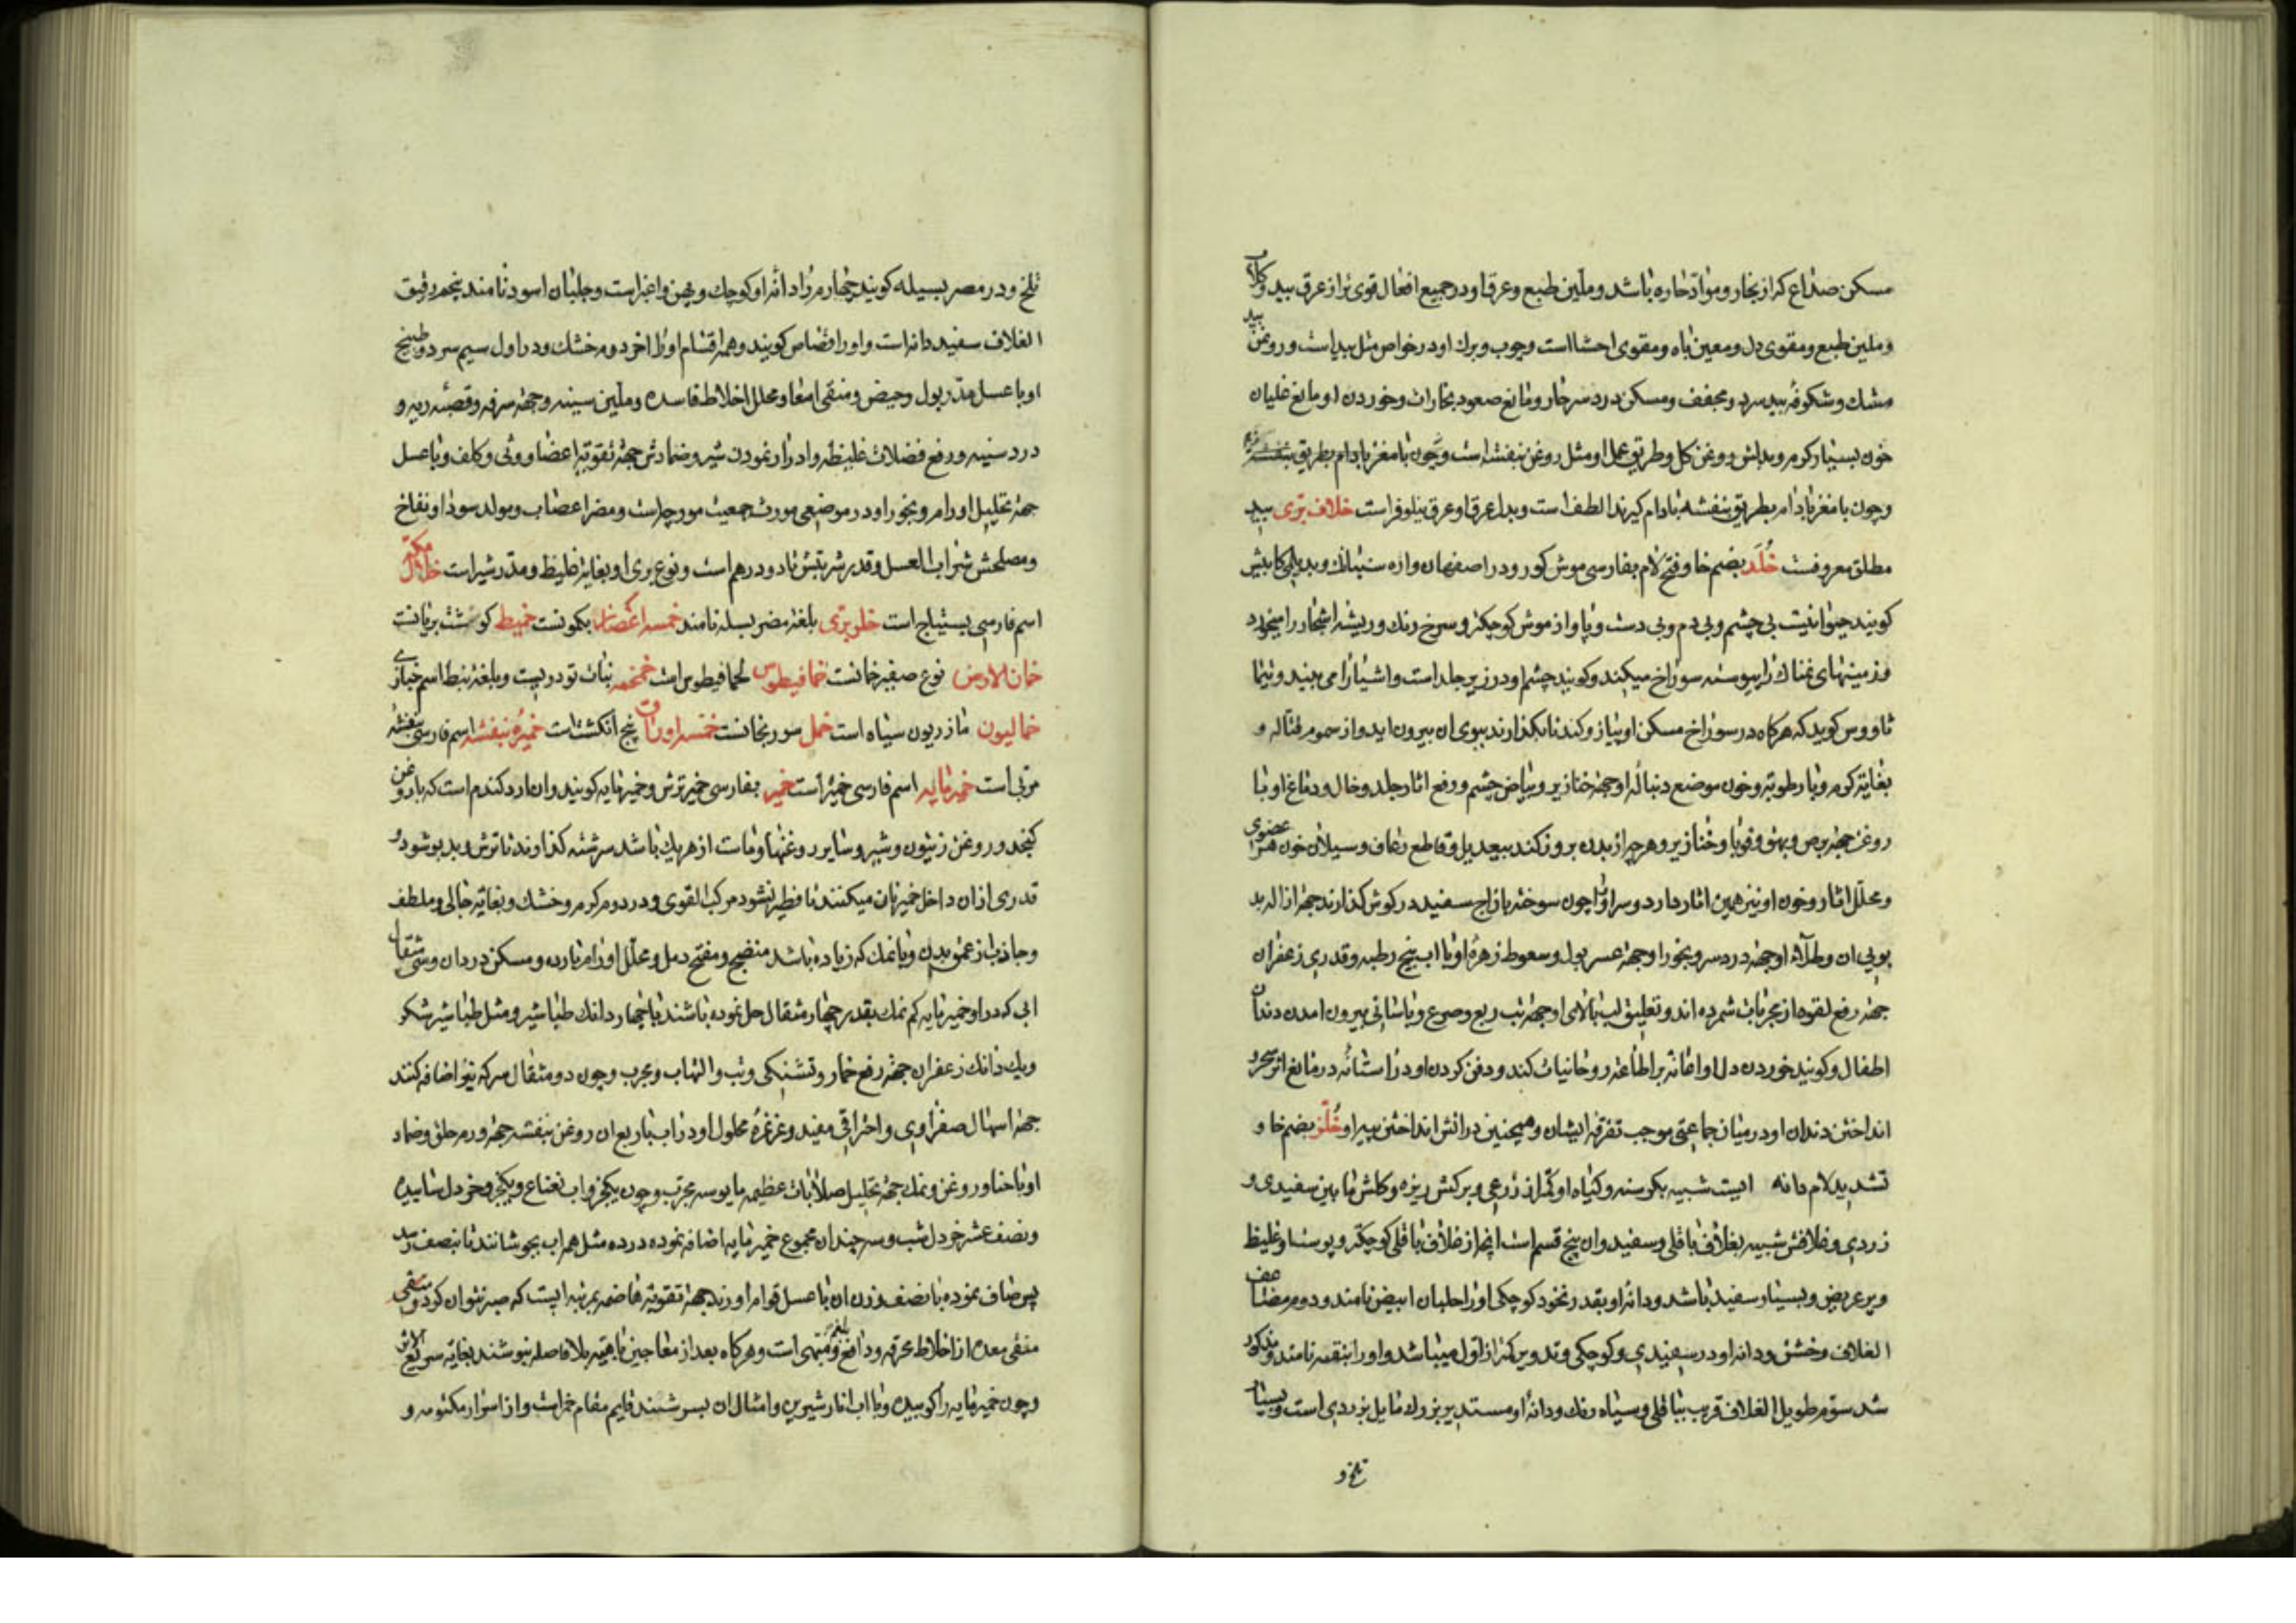 مسکن صداع که از بخار و مواد حاره باشد و ملین طبع و عرق او در جمیع افعال قوی تر از عرق بید و کلاب
و ملین طبع و مقوی دل و معین باه و مقوی احشا است و چوب و برك او در خواص مثل بید است و روغن بید
مشك و شکوفه بید سرد و مجفف و مسکن درد سر حار و مانع صعود بخارات و خوردن او مانع غلیان
خون بسیار کرم و بدلش روغن کل و طریق عمل او مثل روغن بنفشه است و چون با مغز بادام بطریق بنفشه
و چون با مغز بادام بطریق بنفشه بادام کیرند الطف است و بدل عرق او عرق نیلوفر است خلاف بری بید
مطلق معروفست خُلَد بضم خا و فتح لام بفارسی موش کور و در اصفهان و
کویند حیوانیست بی چشم و بی دم و بی دست و پا و از موش کوچکتر و سرخ رنك و ریشه اشجار را میخورد
و زمینهای نمناك را پیوسته سوراخ میکند و کویند چشم او در زیر جلد است و اشیا را می بیند و
ثاووس کوید که هرکاه در سوراخ مسکن او پیاز و کندنا بکذارند ببوی ان بیرون اید و از سموم قتاله و
بغایة کرم و با رطوبة و خون موضع دنباله او جهة خنازیر و بیاض چشم و رفع اثار جلد و خال و دماغ او با
روغن جهة برص و بهق و قوبا و خنازیر و هرچه از بدن بروز کند بیعدیل و قاطع رعاف و سیلان خون هر عضوی
و محلل اثار و خون او نیز همین اثار دارد و سر او را چون سوخته با زاج سفید در کوش کذارند جهة ازاله بد
بویی ان و طلاء او جهة درد سر و بخور او جهة عسر بول و سعوط زهره او با اب بیخ رطبه و قدری زعفران
جهة رفع لقوه از مجربات شمرده اند و تعلیق لب بالای او جهة تب ربع و صرع و باسانی بیرون امدن دندان
اطفال و کویند خوردن دل او اعانة بر اطاعة روحانیات کند و دفن کردن او در استانه در مانع اثر سحر و
انداختن دندان او در میان جماعتی موجب تفرقه ایشان و همچنین در اتش انداختن پیه او خُلّر بضم خا و
تشدید لام دانه ایست شبیه بکرسنه و کیاه او کمتر از ذرعی و برکش ریزه و کلش مابین سفیدی و
زردی و غلافش شبیه بغلاف باقلی و سفید و ان پنج قسم است انچه از غلاف باقلی کوچکتر و پوست او غلیظ
و پر عریض و بسیار سفید باشد و دانه او بقدر نخود کوچکی او را جلبان ابیض نامند و دوم مضاعف
الغلاف و خشن و دانه او در سفیدی و کوچکی و تدویر کمتر از اول میباشد و او را بنقیه نامند و مذکور
شد سوم طویل الغلاف قریب بباقلی و سیاه رنك و دانه او مستدیر بزرك مایل بزردی است و بسیار
تلخ و
تلخ و در مصر بسیله کویند چهارم زاد دانه او کوچك و پهن و اغبر است و جلبان اسود نامند پنجم رقیق
الغلاف سفید دانه است و او را قصاص کویند و همه اقسام او را اخر دوم خشك و در اول سیم سرد و طبیخ
او با عسل مدر بول و حیض و منقی امعا و محلل اخلاط فاسده و ملین سینه و جهة سرفه و قصبه ریه و
درد سینه و رفع فضلات غلیظه و ادرار نمودن شیر و ضمادش جهة تقویة اعضا و وثی و کلف و با عسل
جهة تحلیل اورام و بخور او در موضعی مورث جمعیت مورچه است و مضر اعصاب و مولد سودا و نفاخ
و مصلحش شراب العسل و قدر شربتش تا ده درهم است و نوع بری او بغایة غلیظ و مدر شیر است خلال مکه
اسم فارسی بستیناج است خلر بری بلغة مصر بسله نامند خمسه اغصان بکمونست خمیط کوشت بریانست
خمان الارض نوع صغیر خمانست خمافیطوس کمافیطوس است خمخم نبات تودریست و بلغة نبط اسم خبازی
خمالیون مازریون سیاه است خمل سورنجانست خمسه اوراق پنج انکشت است خمیره بنفشه اسم فارسی بنفشه
مربی است خمیر مایه اسم فارسی خمیر است خمیر بفارسی خمیر ترش و خمیر مایه کویند و ان ارد کندم است که با روغن
کنجد و روغن زیتون و شیر و سایر روغنها و ماست از هر یك باشد سرشته کذارند تا ترش و بد بو شود و
قدری از ان داخل خمیر نان میکنند تا فطیر نشود مرکب القوی و در دوم کرم و خشك و بغایة جالی و ملطف
و جاذب از عمق بدن و با نمك که زیاده باشد منضج و مفتح دمل و محلل اورام بارده و مسکن درد ان و سی مثقال
ابی که در او خمیر مایه کم نمك بقدر چهار مثقال حل نموده باشند با چهار دانك طباشیر و مثل طباشیر شکر
و یك دانك زعفران جهة رفع خمار و تشنکی و تب و التهاب و مجرب و چون دو مثقال سرکه نیز اضافه کنند
جهة اسهال صفراوی و احتراقی مفید و غرغره محلول او در اب با ربع ان روغن بنفشه جهة ورم حلق و ضماد
او با حنا و روغن و نمك جهة تحلیل صلابات عظیمه مایوسه مجرب و چون یکجزو اب نعناع و یکجزو خردل سائیده
و نصف عشر خردل شب و سه چندان مجموع خمیر مایه اضافه نموده در ده مثل همه اب بجوشانند تا بنصف رسد
پس صاف نموده با نصف وزن ان با عسل قوام اورند جهة تقویة هاضمه بمرتبه ایست که صبر نتوان کرد و مشهی
منقی معده از اخلاط محرقه و دافع بلغم و مشهی است و هرکاه بعد از معاجین باهیه بلا فاصله بنوشند بغایة سریع الاثر
و چون خمیر مایه را کوبیده و با اب انار شیرین و امثال ان بسرشند قایم مقام خمر است و از اسرار مکتومه و